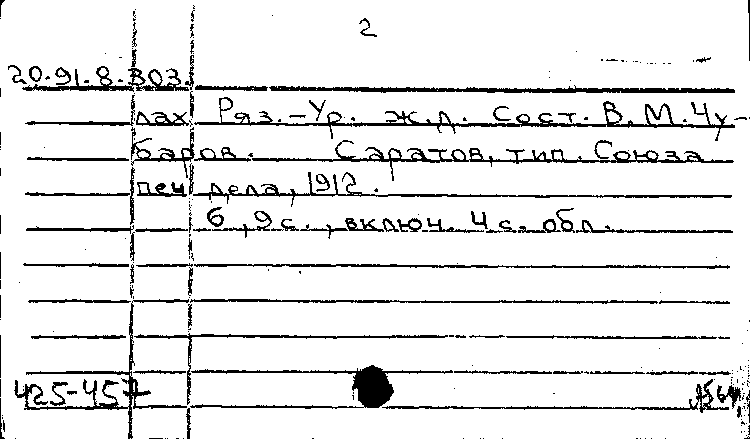 2
20.91.8.303.
лах Ряз.-Ур. ж.д. Сост. В.М.Чу-
баров. Саратов, тип. Союза
печ дела, 1912.
6, 9 с., включ. 4 с. обл.
425-457